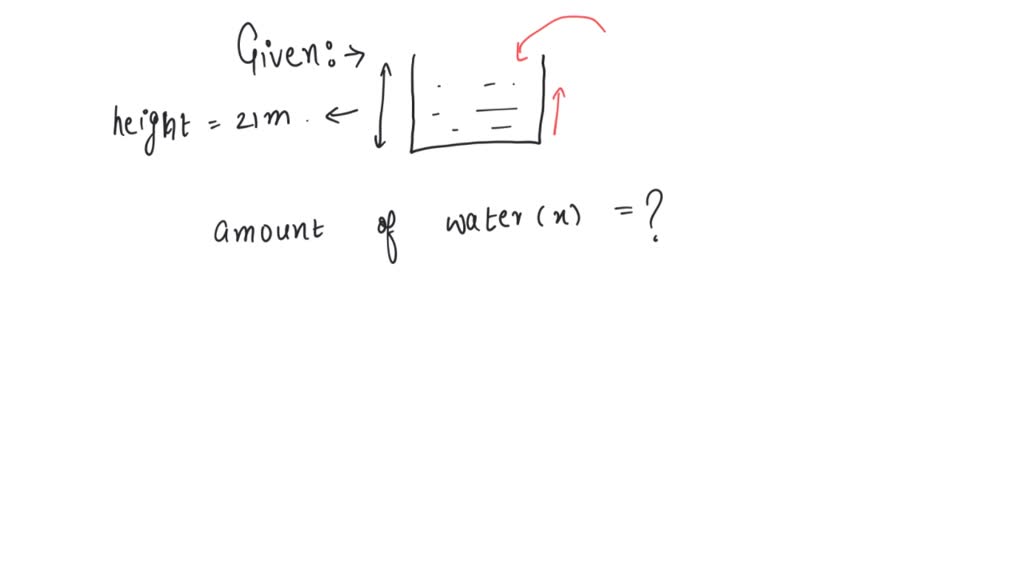 Given:→
height = 21m. ←
amount of water (x) = ?